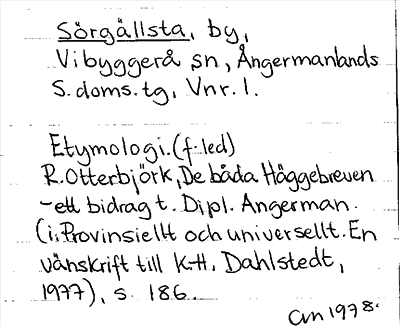 Sörgållsta, by,
Vibyggerå sn, Ångermanlands
S. doms. tg, Vnr. 1.
Etymologi. (f. led)
R. Otterbjörk, De båda Häggebreven
- ett bidrag t. Dipl. Angerman.
(i: Provinsiellt och universellt. En
vänskrift till K-H. Dahlstedt,
1977), s. 186.
1978.